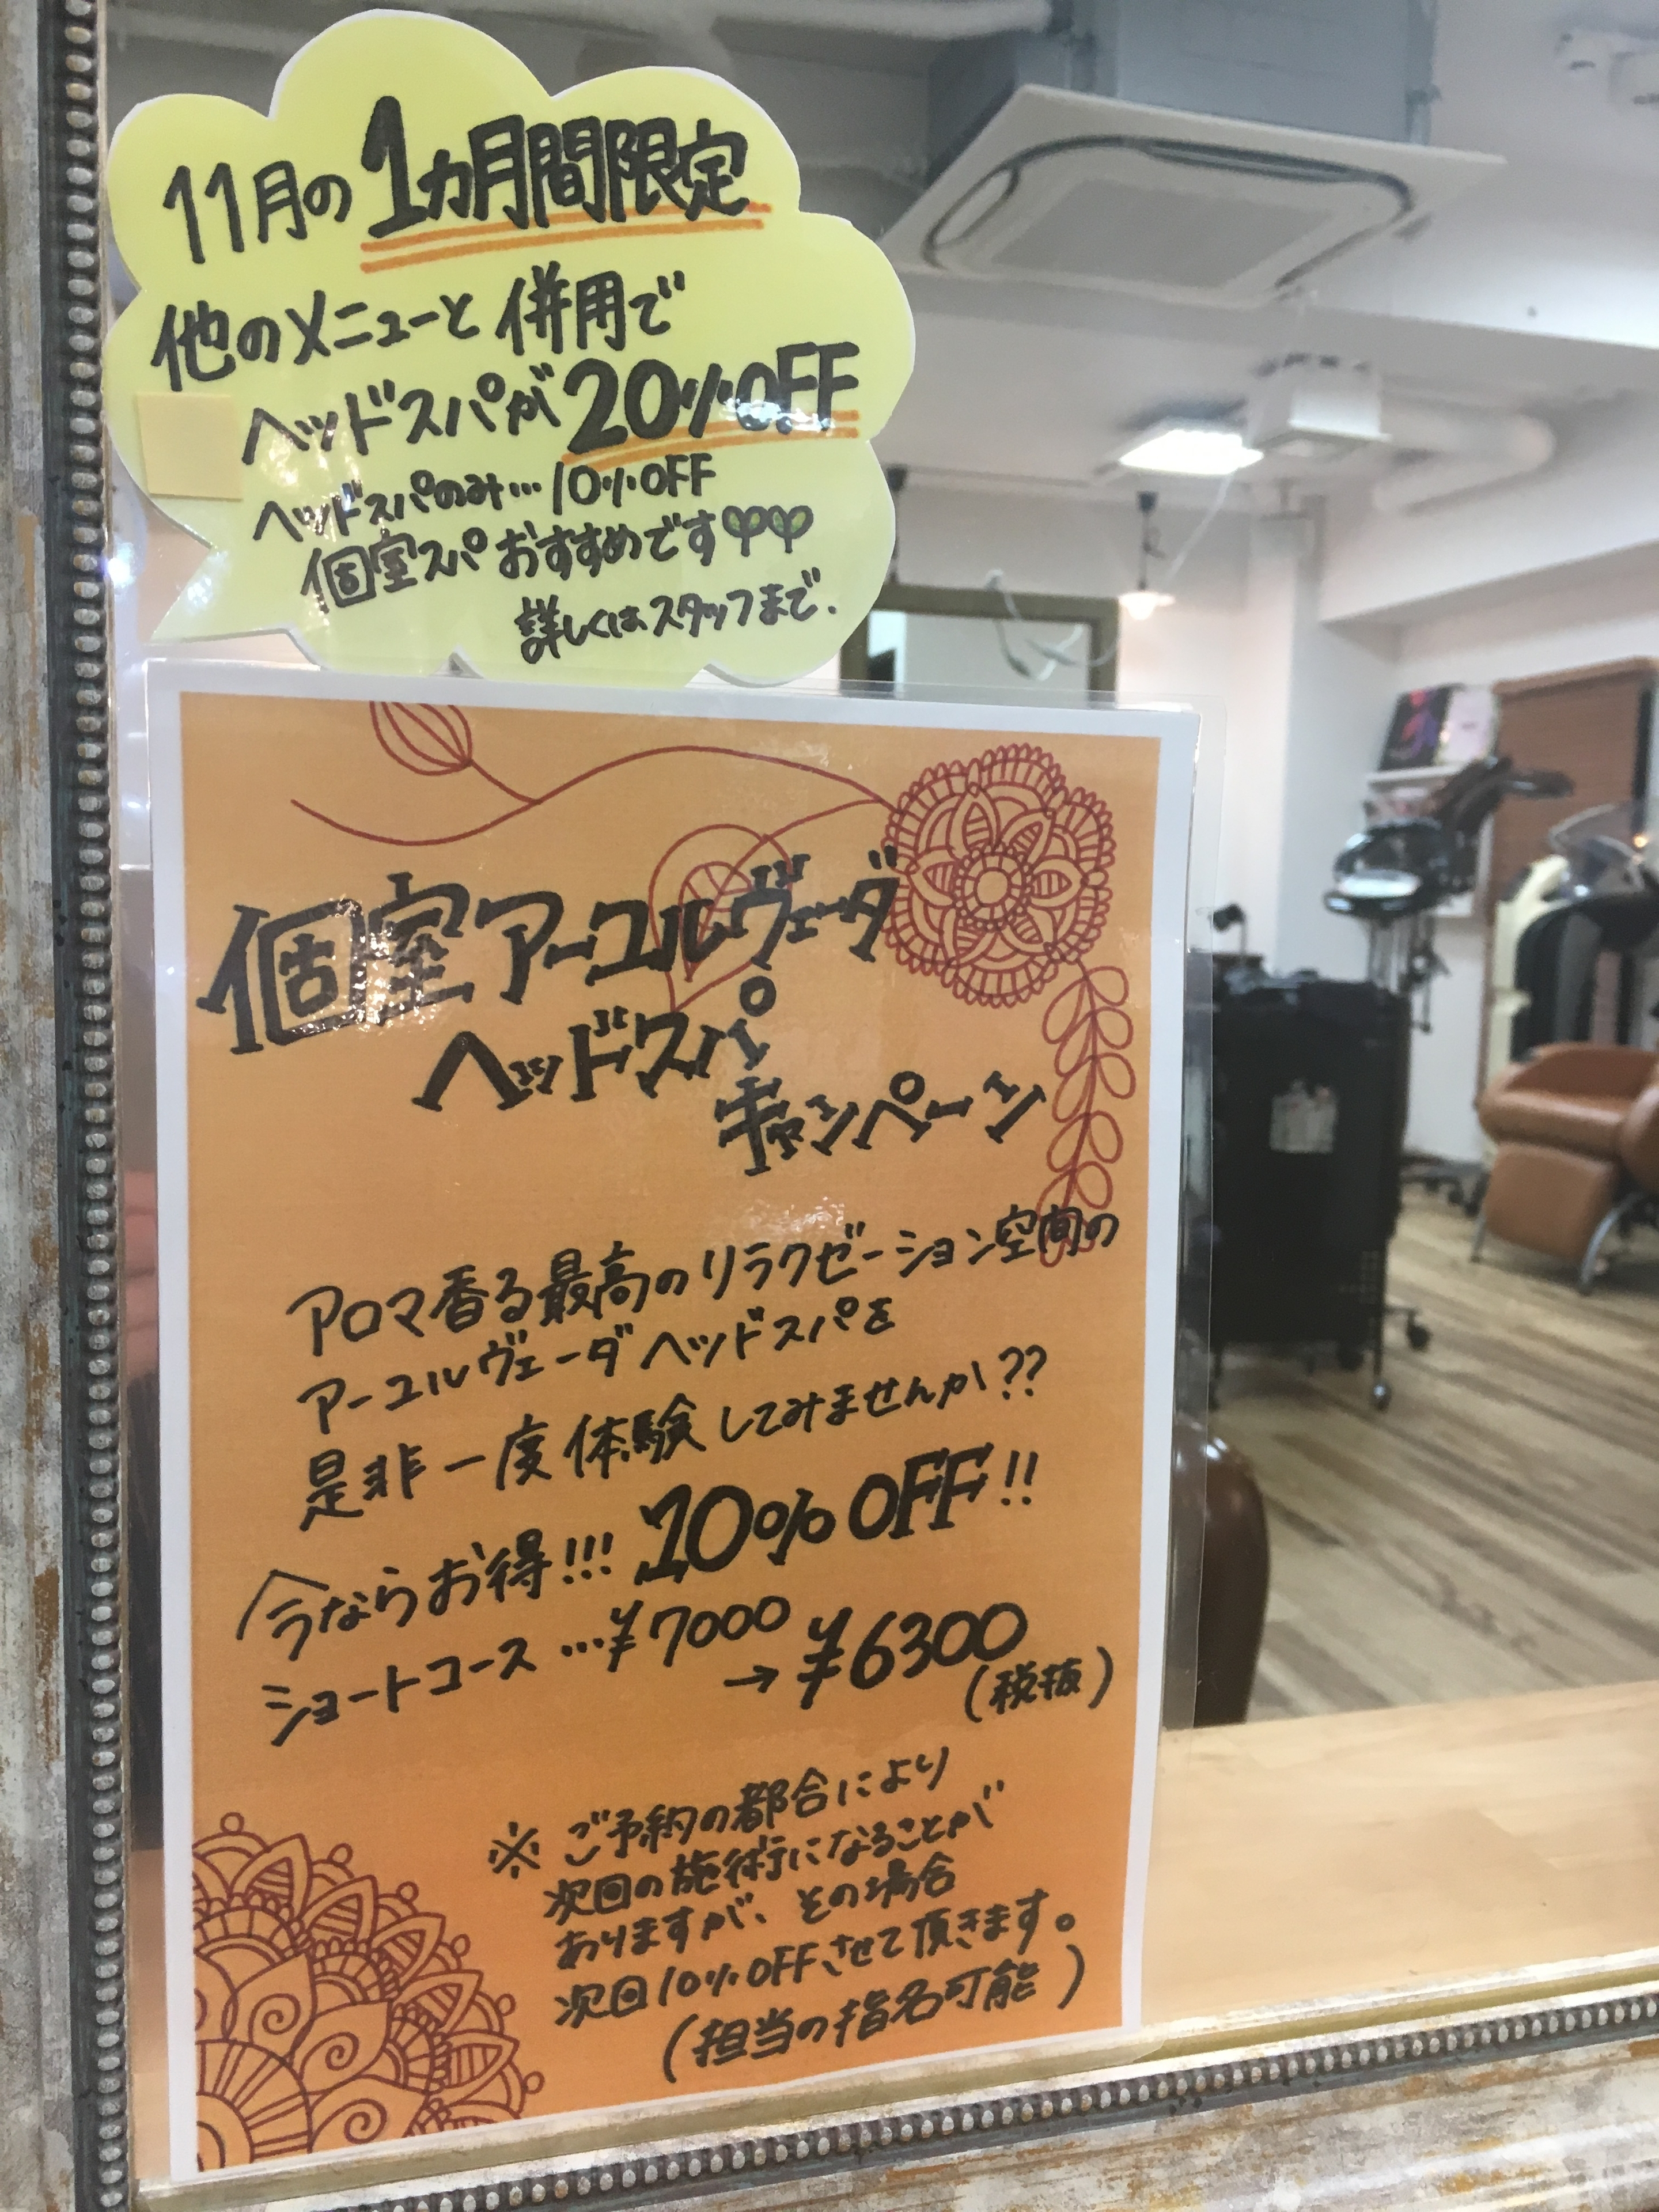 11月の1カ月間限定
他のメニューと併用で
ヘッドスパが20%OFF
ヘッドスパのみ…10%OFF
個室スパおすすめです
詳しくはスタッフまで.
個室アーユルヴェーダ
ヘッドスパ
キャンペーン
アロマ香る最高のリラクゼーション空間の
アーユルヴェーダヘッドスパを
是非一度体験してみませんか??
今ならお得!!! 10%OFF!!
ショートコース…¥7000
→¥6300
(税抜)
※ご予約の都合により
次回の施術になることが
ありますが、その場合
次回10%OFFさせて頂きます。
(担当の指名可能)